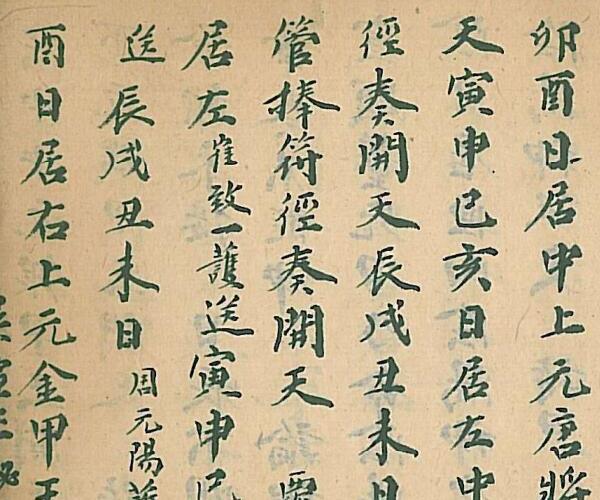 卯酉日居中上元唐將
天寅申巳亥日居左中
徑奏開天辰戌丑未日
管捧符徑奏開天
居左崔致一護送寅申巳
送辰戌丑未日周元陽護
酉日居右上元金甲王